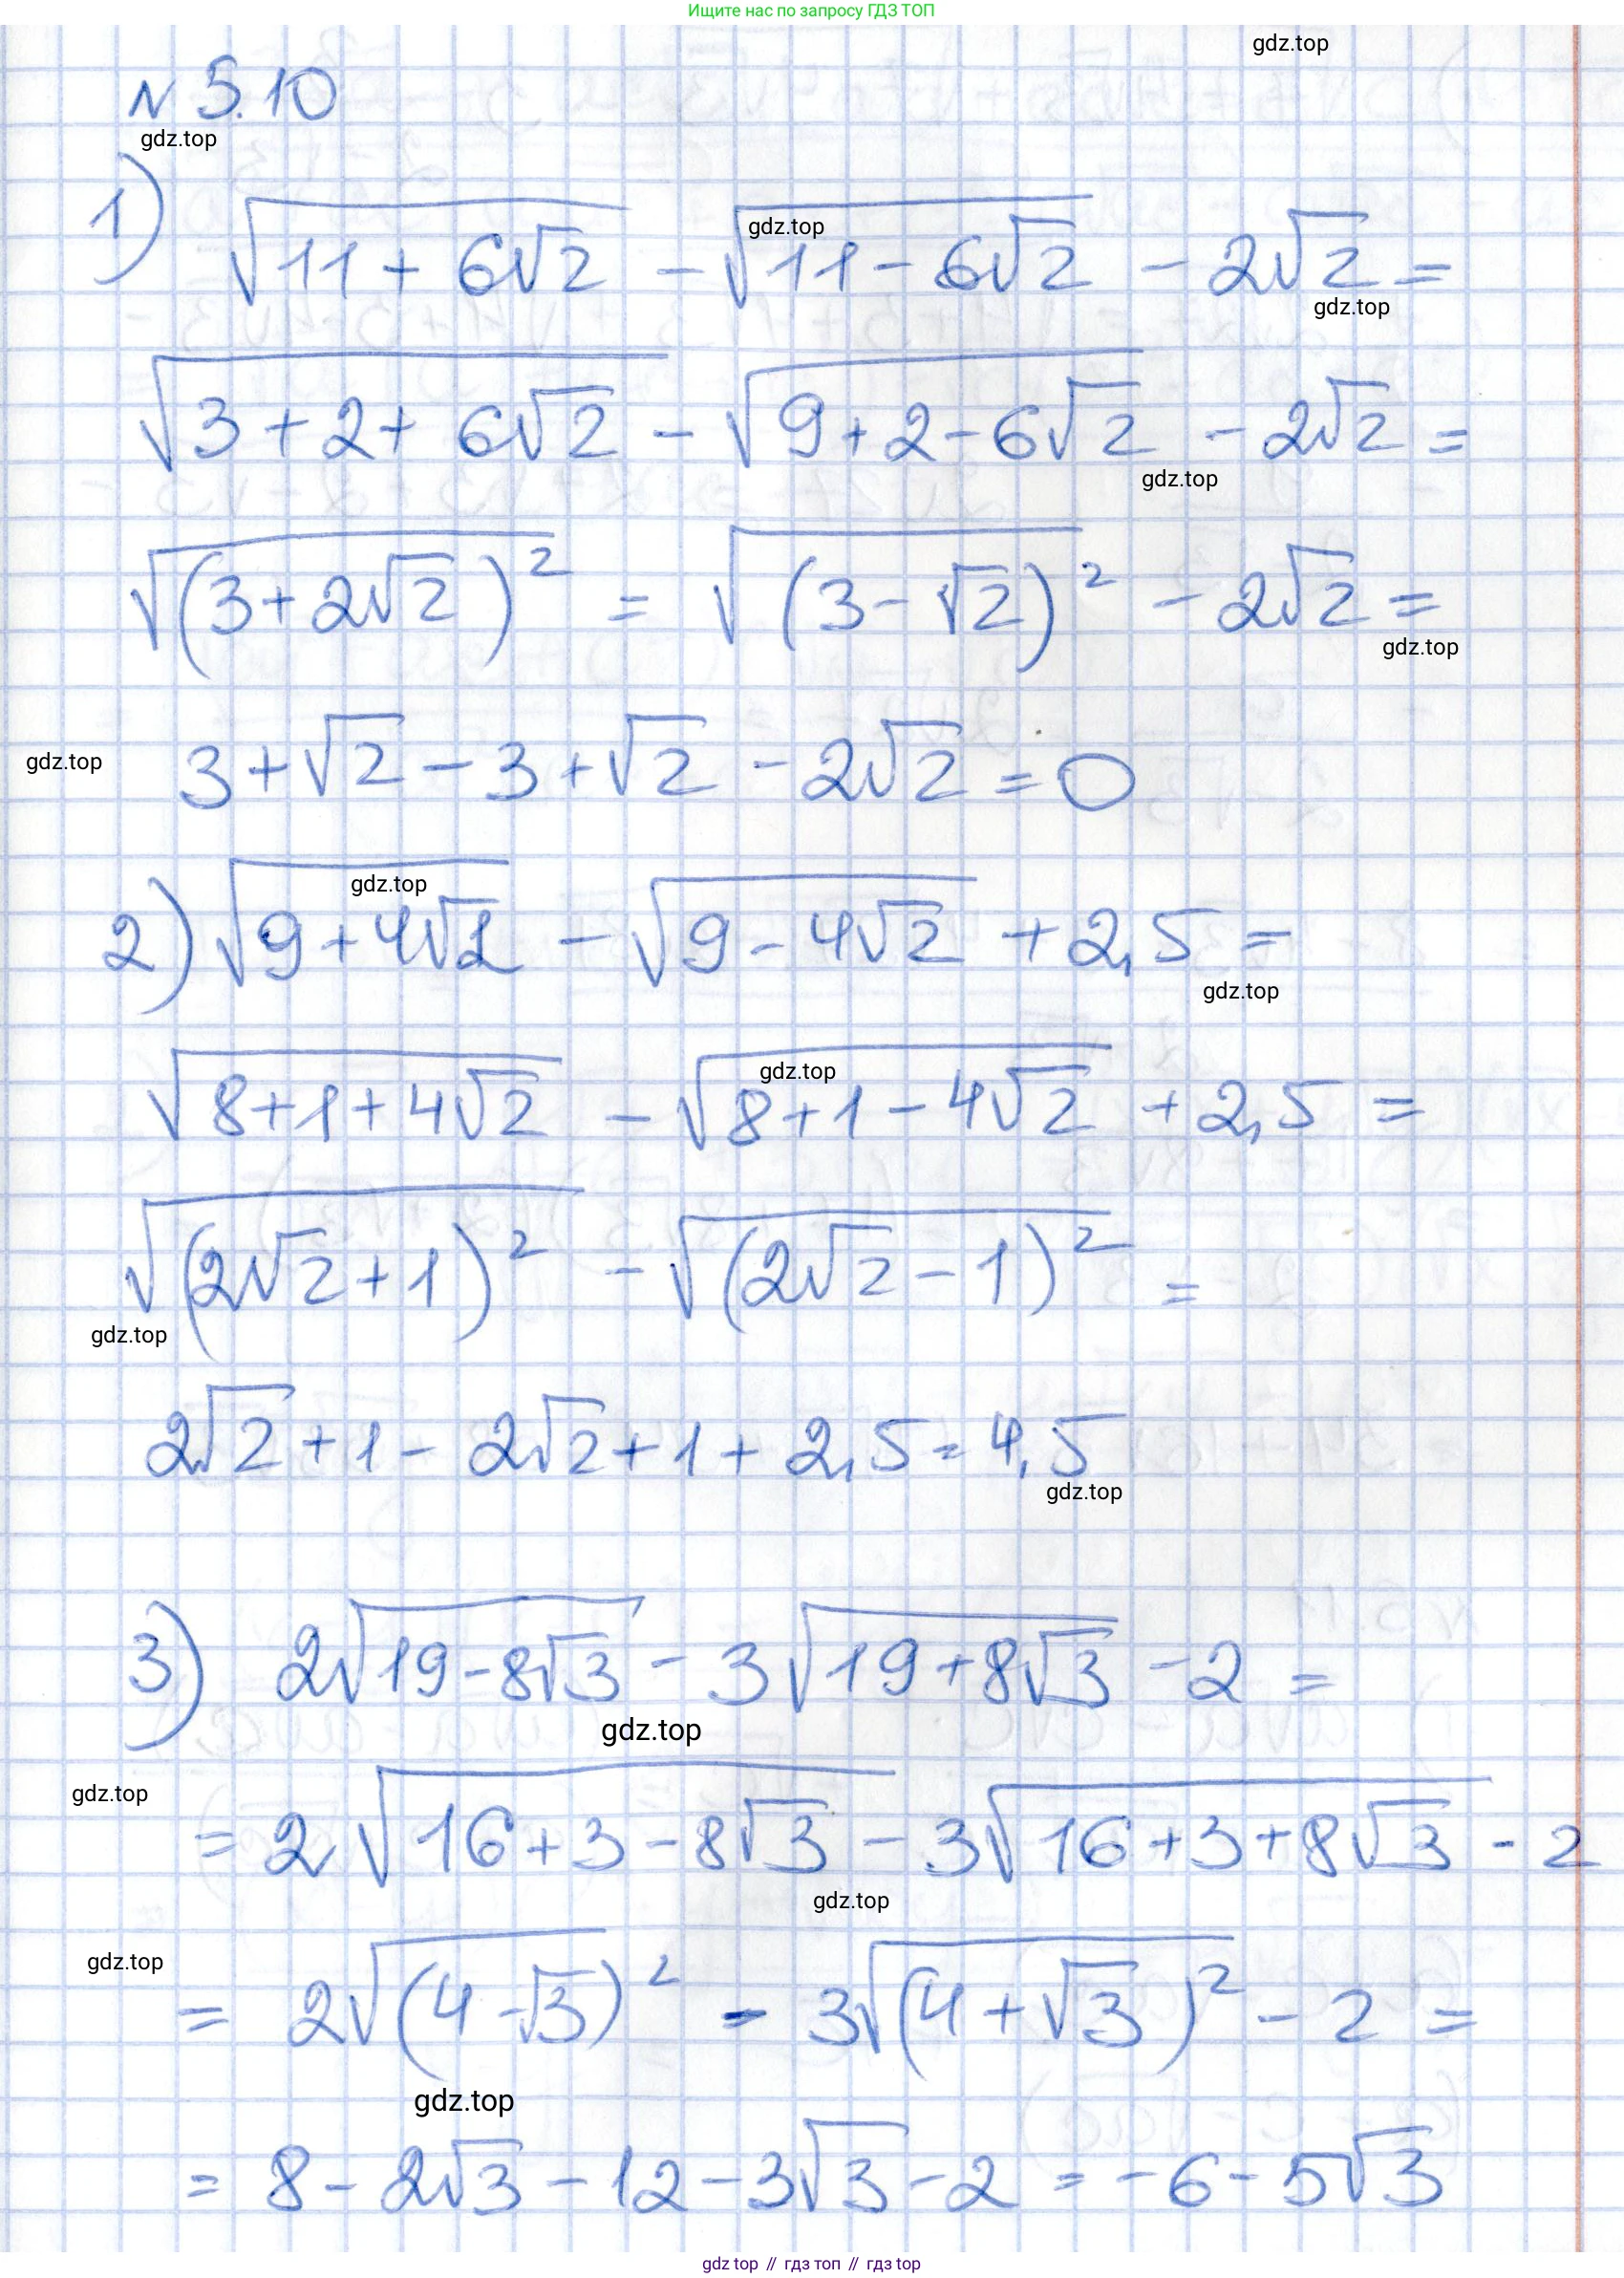 Ищите нас по запросу ГДЗ ТОП
gdz.top
N 5.10
gdz.top
1) √(11 + 6√2) - √(11 - 6√2) - 2√2 =
gdz.top
gdz.top
√(3 + 2 + 6√2) - √(9 + 2 - 6√2) - 2√2 =
gdz.top
√((3 + 2√2)²) = √((3 - √2)²) - 2√2 =
gdz.top
3 + √2 - 3 + √2 - 2√2 = 0
gdz.top
gdz.top
2) √(9 + 4√2) - √(9 - 4√2) + 2,5 =
gdz.top
gdz.top
√(8 + 1 + 4√2) - √(8 + 1 - 4√2) + 2,5 =
√((2√2 + 1)²) - √((2√2 - 1)²) =
gdz.top
2√2 + 1 - 2√2 + 1 + 2,5 = 4,5
gdz.top
3) 2√(19 - 8√3) - 3√(19 + 8√3) - 2 =
gdz.top
gdz.top
= 2√(16 + 3 - 8√3) - 3√(16 + 3 + 8√3) - 2
gdz.top
gdz.top
= 2√(4 - √3)² - 3√((4 + √3)²) - 2 =
gdz.top
= 8 - 2√3 - 12 - 3√3 - 2 = -6 - 5√3
gdz top // гдз топ // гдз top